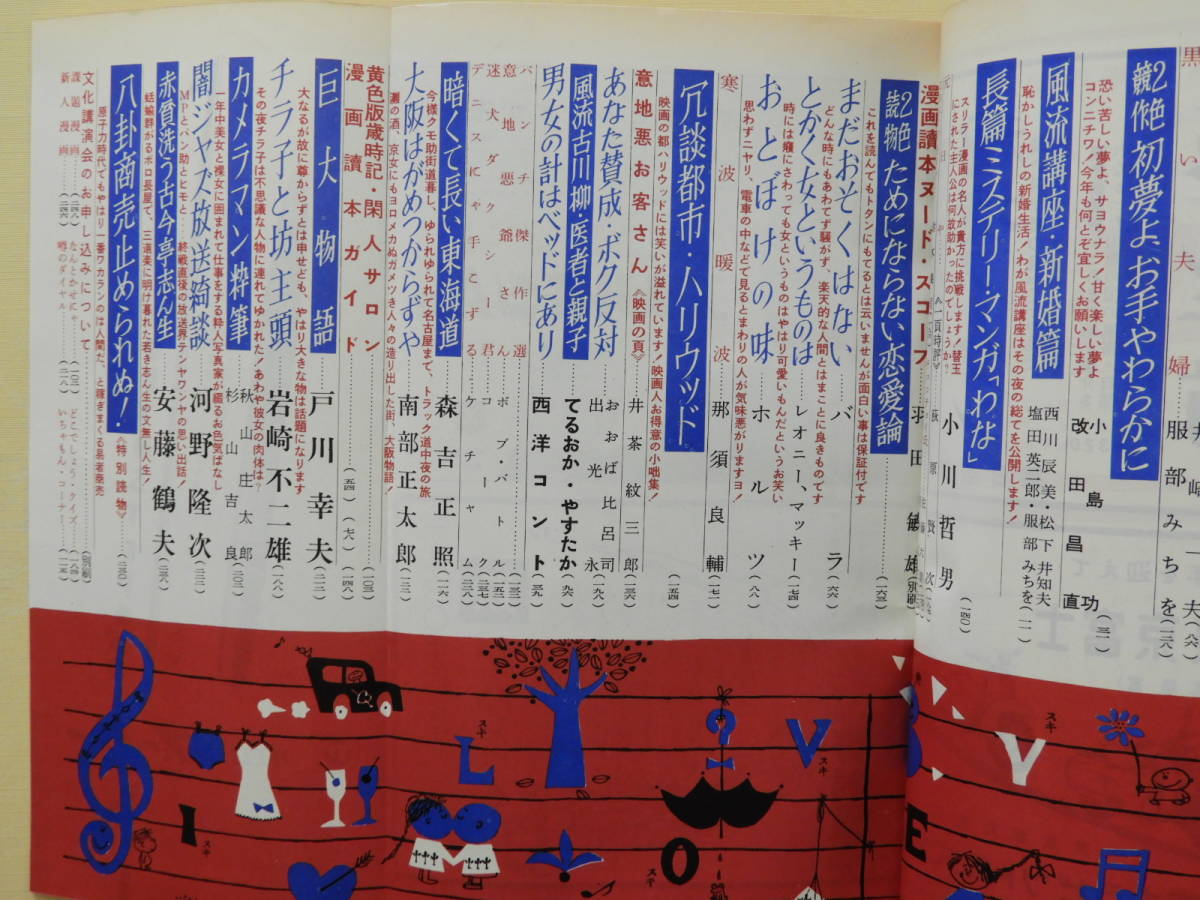 黒い夫婦
服部みちを(一二八)
2絶競作 初夢よ、お手やわらかに
恐い苦しい夢よ、サヨウナラ!甘く楽しい夢よ
コンニチワ!今年も何とぞ宜しくお願いします
小島功
改田昌直(三一)
風流講座・新婚篇
恥かしうれしの新婚生活!わが風流講座はその夜の総てを公開します!
西川辰美・松下井知夫
塩田英二郎・服部みちを(一一)
長篇ミステリー・マンガ「わな」
スリラー漫画の名人が貴方に挑戦します!替玉
にされた主人公は何故助かったのでしょうか?
小川哲男(一四〇)
漫画讀本ヌード・スコープ
2絶読物 ためにならない恋愛論
これを読んでもトタンにもてるとは云いませんが面白い事は保証付です
羽田敏雄(一六三)
まだおそくはない
どんな時にもあわてず騒がず、楽天的な人間とはまことに良きものです
バラ(六六)
とかく女というものは
時には癪にさわっても女というものはやはり可愛いもんだというお笑い
レオニー、マッキー(一七四)
おとぼけの味
思わずニヤリ、電車の中などで見るとまわりの人が気味悪がりますヨ!
ホルツ(八八)
寒波暖波
那須良輔(一七一)
冗談都市・ハリウッド
映画の都ハリウッドには笑いが溢れています!映画人お得意の小咄集!
(一五四)
意地悪お客さん《映画の頁》
井茶紋三郎(二三六)
あなた賛成・ボク反対
おおば比呂司
出光永(一九八)
風流古川柳・医者と親子
てるおか・やすたか(九六)
男女の計はベッドにあり
西洋コント(三九)
パンチ傑作選(一三二)
意地悪爺さん
ボブ・バトル(一五二)
迷犬ダクー君
コーク(二三七)
デニスにゃ手こずる
ケチャム(二三八)
暗くて長い東海道
今様クモ助街道暮し、ゆられゆられて名古屋まで、トラック道中夜の旅
森吉正照(一一六)
大阪はがめつからずや
灘の酒、京女にもヨロメカぬガメツき人々の造り出した街、大阪物語!
南部正太郎(一三二)
黄色版歳時記・閑人サロン(一〇三)
漫画讀本ガイド(五四)(七八)(一四八)
巨大物語
大なるが故に尊からずとは申せども、やはり大きな物は話題になります
戸川幸夫(二一二)
チラ子と坊主頭
その夜チラ子は不思議な人物に連れてゆかれた!あわや彼女の肉体は?
岩崎不二雄(一八八)
カメラマン粋筆
一年中美女と裸女に囲まれて仕事をする粋人写真家が綴るお色気ばなし
秋山庄太郎
杉山吉良(二〇二)
闇ジャズ放送綺談
MPとパン助とヒモと……終戦直後の放送界テンヤワンヤの思い出話!
河野隆次(二二二)
赤貧洗う古今亭志ん生
蛞蝓群がるボロ長屋で、三道楽に明け暮れた若き志ん生の文無し人生!
安藤鶴夫(二三八)
八卦商売止められぬ!
原子力時代でもやはり一番ワカランのは人間だ、と稼ぎまくる易者商売
《特別読物》(二三〇)
文化講演会のお申し込みについて(別刷)
課題漫画(二四八)
なんとかせにゃ(一〇二)
どこでしょう・クイズ(一八四)
新人漫画(二四六)
噂のダイヤル(二一八)
いちゃもん・コーナー(一一五)
スキ
L
スキ
?
V
スキ
V
スキ
I
スキ
O
スキ
E